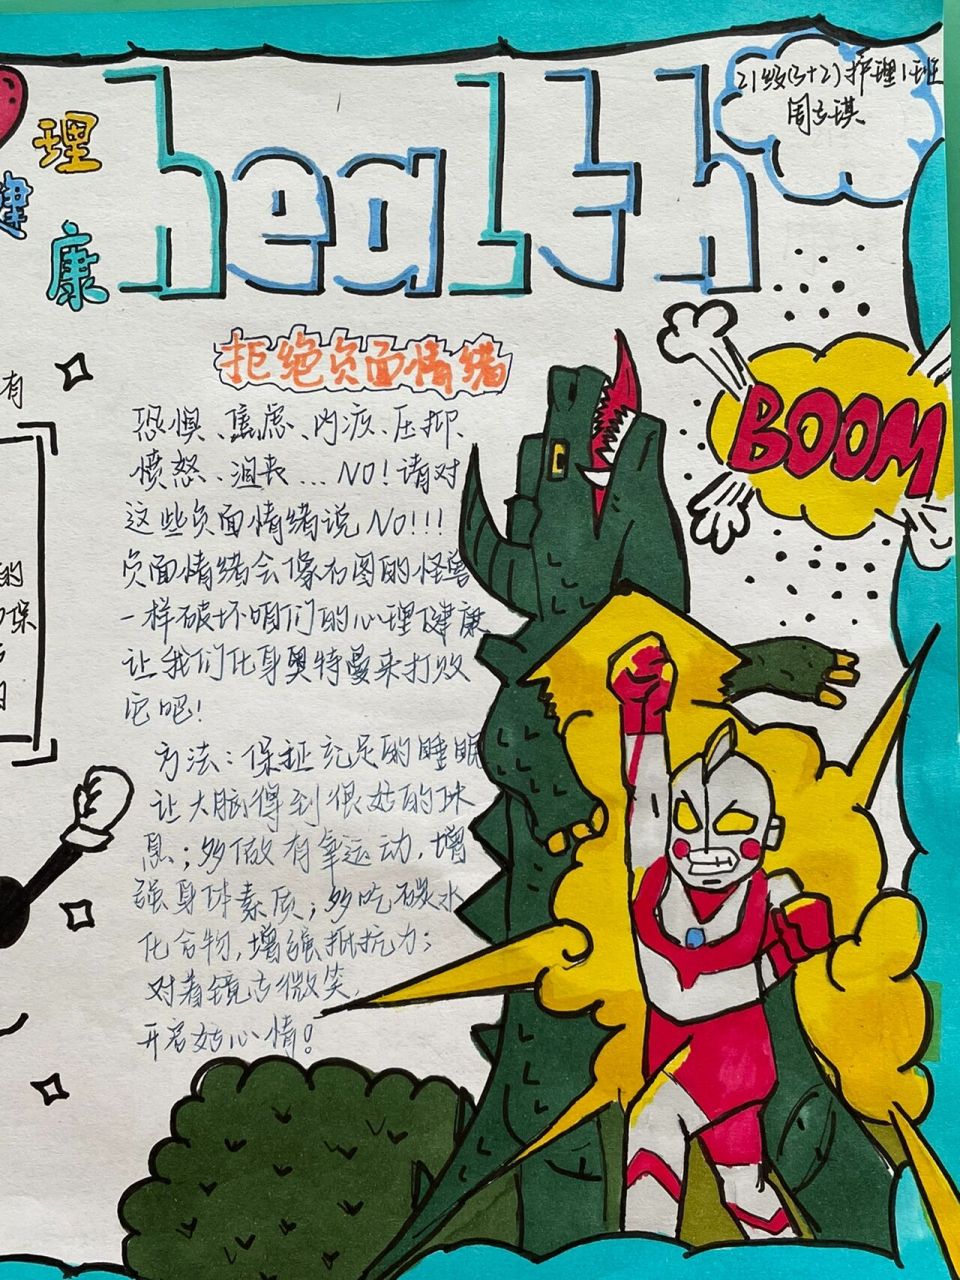 21级(3+2)护理1班
周立琪
理
健
康
health
拒绝负面情绪
恐惧、焦虑、内疚、压抑、
愤怒、沮丧...NO!请对
这些负面情绪说NO!!!
负面情绪会像右图的怪兽
一样破坏咱们的心理健康
让我们化身奥特曼来打败
它吧!
方法:保证充足的睡眠
让大脑得到很好的休
息;多做有氧运动,增
强身体素质;多吃碳水
化合物,增强抵抗力;
对着镜子微笑,
开启好心情!
BOOM
有
的
保